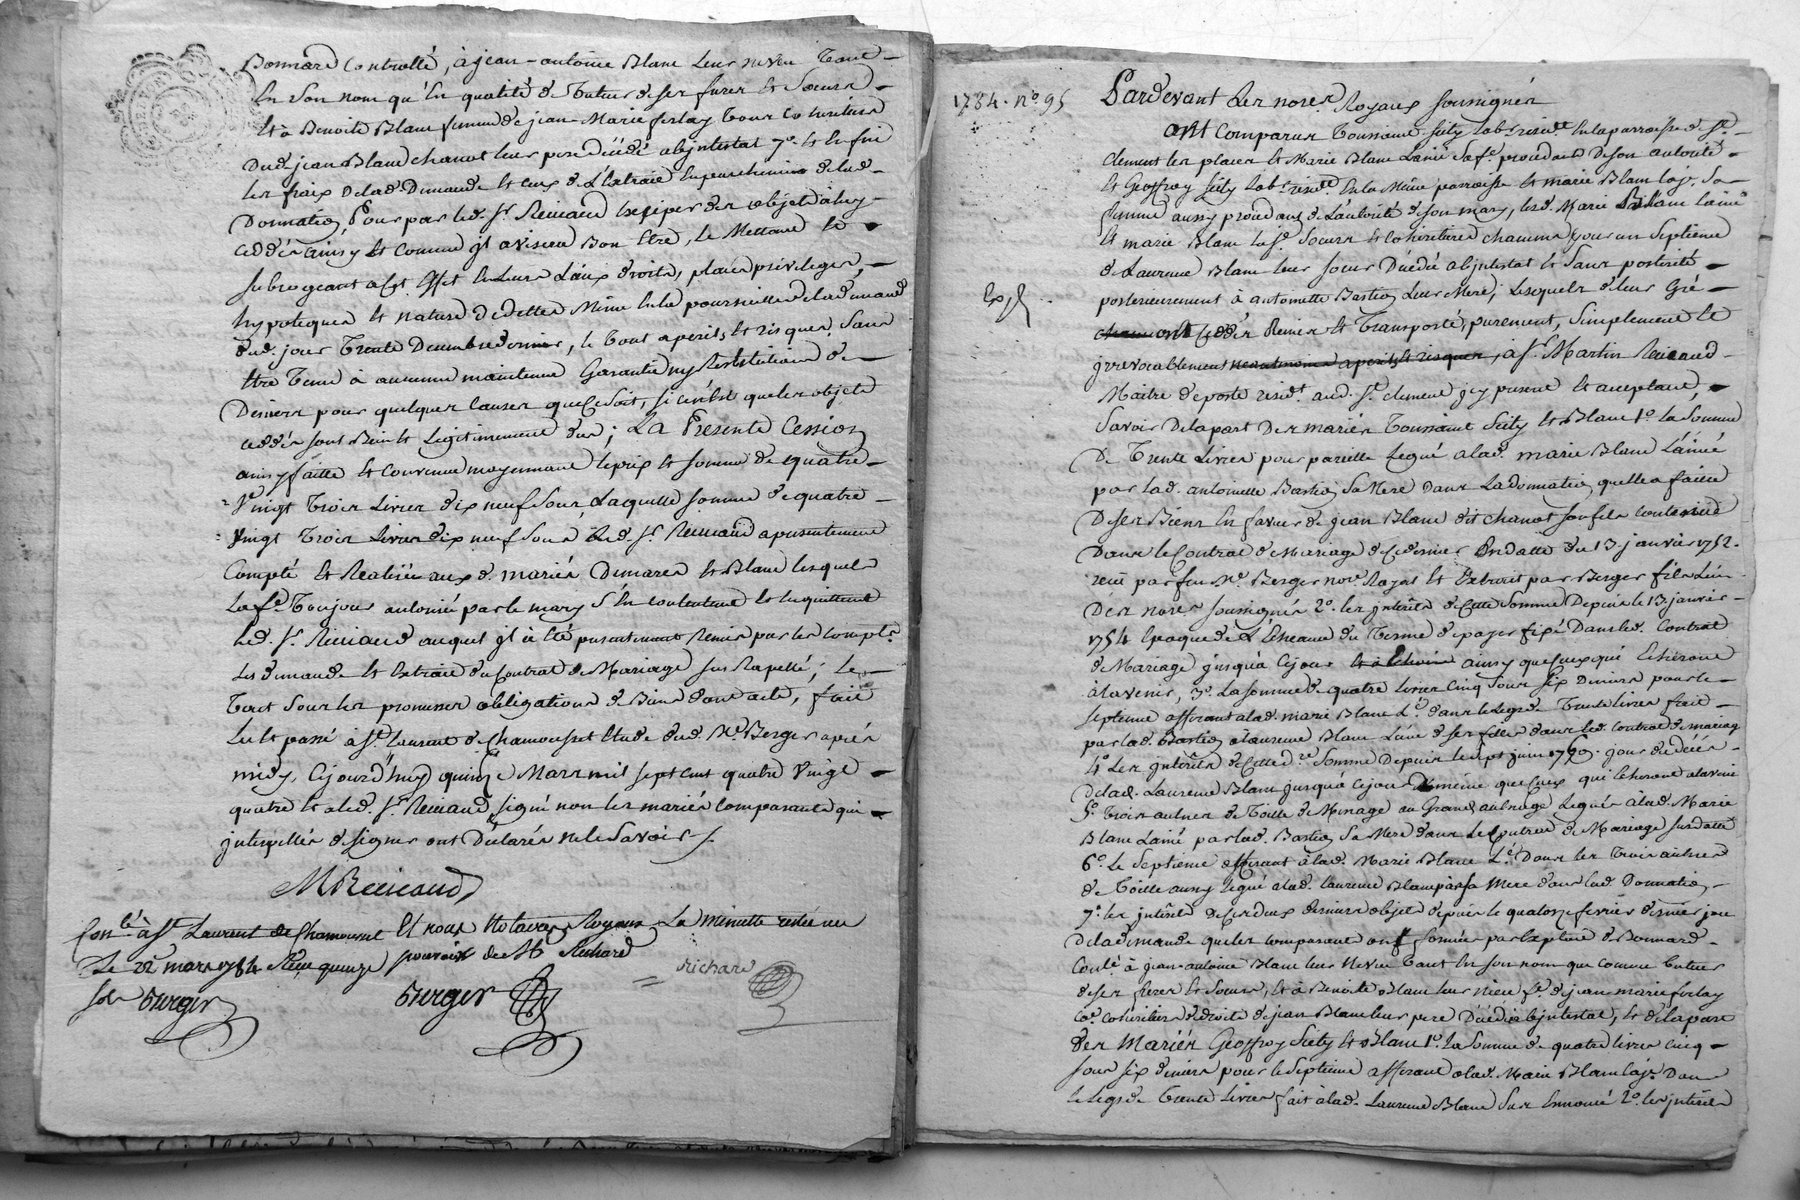 Bonnard Controllé, à jean-antoine Blanc leur neveu Tant
En Son nom qu'En qualité de Tuteur de ses freres et Soeurs
Et à Benoite Blanc femme de jean-Marie ferlay Tous Cohéritiers
Dud. jean Blanc chanot leur pere Décédé abjntestat 7°. et Enfin
les fraix de lad. Demande et ceux de L'Extrait En parchemin de lad.
Donnation, Pour par led. Sr. Reicaud
ceddés ainsy et Comme jl avisera Bon Etre, le Mettant et
Subrogeant a cet Effet En Leurs Lieux, droits, place, privileges,
hypoteques et nature de dettes Même En la poursuitte de lad. demande
dud. jour Trente Decembre dernier, le tout a perils et risques, Sans
Etre Tenu à aucune maintenue Garantie ny Restitution de
Deniers pour quelques causes que Ce Soit, Si ce n'Est que les objets
ceddés sont Bien et Legitimement dus; La Présente Cession
ainsy faitte et convenue moyennant le prix et Somme de quatre
Vingt Trois Livres dix neuf Sous, Laquelle Somme de quatre
Vingt Trois Livres dix neuf Sous led. Sr. Reicaud a presentement
Compté et Realisée aux d. mariés Demare et Blanc lesquels
la fe. Toujours autorisée par le mary S'En contentent et En quittent
led. Sr. Reicaud auquel jl à Eté presentement Remis par les compts.
Les demande et Extrait du Contrat de Mariage sus Rapellé; le
Tout Sous les promesses obligations de Biens dont acte, fait
Lu et passé à St. Laurent de Chamousset Etude dud. Me. Berger après
midy, Cejourd'huy quinze Mars mil sept cent quatre Vingt
quatre et a led. Sr. Reicaud, signé non les mariés comparants qui
jnterpellés de signer ont Déclarés ne le Savoir /.
MReicaud
Conlé à St. Laurent de Chamousset Et nous Notaires Royaux La Minutte restée au
Le 22 mars 1784 Reçu quinze pouvoir de Me Richard
sols Berger
Berger
richard
1784. n°. 95
Pardevant Les nores Royaux soussignés
ont Comparus Toussaint Siety labr. résidt. En la parroisse de St.
Clement les places et Marie Blanc L'ainé Sa fe. procedant de son autorité
Et Geoffroy Siety labr. residt. En la Même parroisse et marie Blanc la je. Sa
femme aussy procedant de L'autorité de Son mary, lesd. Marie Blanc l'ainé
Et marie Blanc la je. Soeurs et cohéritieres chacune pour un Septieme
de Laurence Blanc leur Soeur Décédée abjntestat et Sans posterité
posterieurement à antoinette Bastion Leur Mere; Lesquels de leur Gré
Exp.
ont Ceddés Remis et Transporté, purement, Simplement et
jrrevocablement a perils et risques, à Sr. Martin Reicaud
Maitre de poste résidt. aud. St. clement jcy present et acceptant,
Savoir De la part Des mariés Toussaint Siety et Blanc 1°. la Somme
De Trente Livres pour pareille Legué a lad. marie Blanc L'ainé
par lad. antoinette Bastion Sa Mere Dans La donnation quelle a faitte
De ses Biens En faveur de jean Blanc dit chanot son fils contenüe
Dans le Contrat de Mariage de Ce dernier En datte du 13. janvier 1752.
reçu par feu Me. Berger nore. Royal et Extrait par Berger fils L'un
Des nores soussignés 2°. les jnterêts de Cette Somme Depuis le 13. janvier
1754 Epoque de L'Echeance du Terme de payer fixé Dans led. Contrat
de Mariage jusqu'à Cejour ainsy que Ceux qui Echéront
à L'avenir, 3°. La somme de quatre livres cinq Sous Six Deniers pour le
septieme afferant a lad. marie Blanc L'é. dans le Legs de Trente livres fait
par lad. Bastion à Laurence Blanc L'une de ses filles dans led. Contrat de mariage
4°. Les jnterêts de Cette de. Somme Depuis le Sept juin jour du décès
De lad. Laurence Blanc jusqu'à Cejour De même que Ceux qui Echéront a l'avenir
5°. Trois aulnes de Toille de Menage au Grand aulnage Legués à lad. Marie
Blanc L'ainé par lad. Bastion Sa Mere dans le Contrat de Mariage susdatté
6°. Le Septieme afferant à lad. Marie Blanc L'é. Dans les Trois aulnes
de Toille aussy Legué a lad. Laurence Blanc par Sa Mere dans lad. Donnation
7°. les jnterêts de Ces deux derniers objets depuis le quatorze fevrier dernier jour
De la demande que les comparants ont formée par Exploit de Bonnard
Conlé à jean-antoine Blanc leur Neveu Tant En Son nom que comme Tuteur
de ses freres et Soeurs, et à Benoite Blanc leur niece fe. de jean marie ferlay
Coe. cohéritiers de droit de jean Blanc leur pere Décédé abjntestat, et de la part
Des Mariés Geoffroy Siety et Blanc 1°. La Somme de quatre livres cinq
sous six deniers pour le Septieme afferant a lad. Marie Blanc la je. Dans
le Legs de Trente Livres fait à lad. Laurence Blanc Sus Ennoncé 2°. les jnterêts